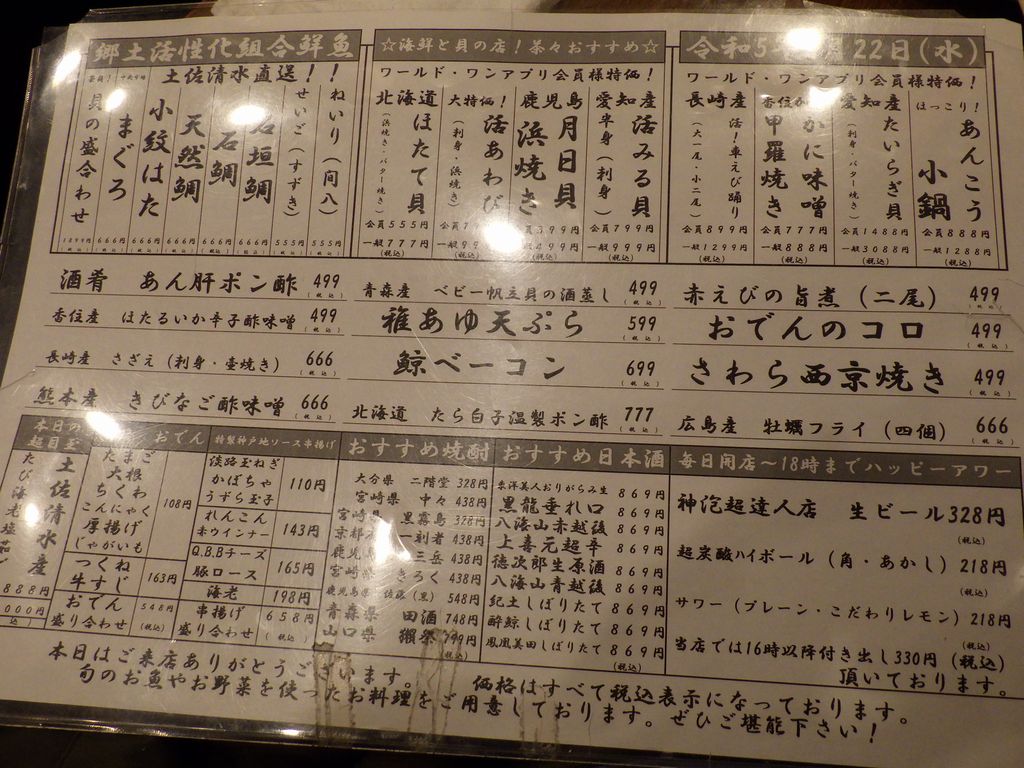 郷土活性化組合鮮魚
土佐清水直送!!
ねいり(間八) 555円
せいご(すずき) 555円
石垣鯛 666円
石鯛 666円
天然鯛 666円
小紋はた 666円
まぐろ 666円
貝の盛合わせ 1299円
☆海鮮と貝の店!茶々おすすめ☆
ワールド・ワンアプリ会員様特価!
愛知産 活みる貝
(刺身) 会員799円 一般999円 (税込)
鹿児島 月日貝 浜焼き
(税込)
大特価! 活あわび
(刺身・浜焼き) (税込)
北海道 ほたて貝
(浜焼き・バター焼き) 会員555円 一般777円 (税込)
令和5 22日(水)
ワールド・ワンアプリ会員様特価!
ほっこり! あんこう小鍋
会員888円 一般1288円 (税込)
愛知産 たいらぎ貝
(刺身・バター焼き) 会員1488円 一般3088円 (税込)
かに味噌甲羅焼き
会員777円 一般888円 (税込)
長崎産 活!車えび踊り
(大一尾、小二尾) 会員899円 一般1299円 (税込)
酒肴 あん肝ポン酢 499 (税込)
香住産 ほたるいか辛子酢味噌 499 (税込)
長崎産 さざえ(刺身・壺焼き) 666 (税込)
熊本産 きびなご酢味噌 666 (税込)
青森産 ベビー帆立貝の酒蒸し 499 (税込)
稚あゆ天ぷら 599 (税込)
鯨ベーコン 699 (税込)
北海道 たら白子温製ポン酢 777 (税込)
赤えびの旨煮(二尾) 499 (税込)
おでんのコロ 499 (税込)
さわら西京焼き 499 (税込)
広島産 牡蠣フライ(四個) 666 (税込)
本日の超目玉
土佐清水産
888円
おでん
たまご
大根
ちくわ
こんにゃく
厚揚げ
じゃがいも
108円
つくね
牛すじ
163円
おでん盛り合わせ 548円 (税込)
特製神戸地ソース串揚げ
淡路玉ねぎ
かぼちゃ
うずら玉子
110円
れんこん
赤ウインナー
143円
Q.B.Bチーズ
豚ロース
165円
海老 198円
串揚げ盛り合わせ 658円 (税込)
おすすめ焼酎
大分県 二階堂 328円
宮崎県 中々 438円
宮崎県 黒霧島 328円
438円
三岳 438円
宮崎県 きろく 438円
鹿児島県 佐藤(黒) 548円
青森県 田酒 748円
山口県 獺祭 799円
(税込)
おすすめ日本酒
東洋美人おりがらみ生 869円
黒龍垂れ口 869円
八海山赤越後 869円
上喜元超辛 869円
徳次郎生原酒 869円
八海山青越後 869円
紀土しぼりたて 869円
酔鯨しぼりたて 869円
鳳凰美田しぼりたて 869円
(税込)
毎日開店〜18時までハッピーアワー
生ビール328円 (税込)
超炭酸ハイボール(角・あかし) 218円 (税込)
サワー(プレーン・こだわりレモン) 218円 (税込)
当店では16時以降付き出し330円(税込)
頂いております。
本日はご来店ありがとうございます。
旬のお魚やお野菜を使ったお料理をご用意しております。ぜひご堪能下さい!
価格はすべて税込表示になっております。